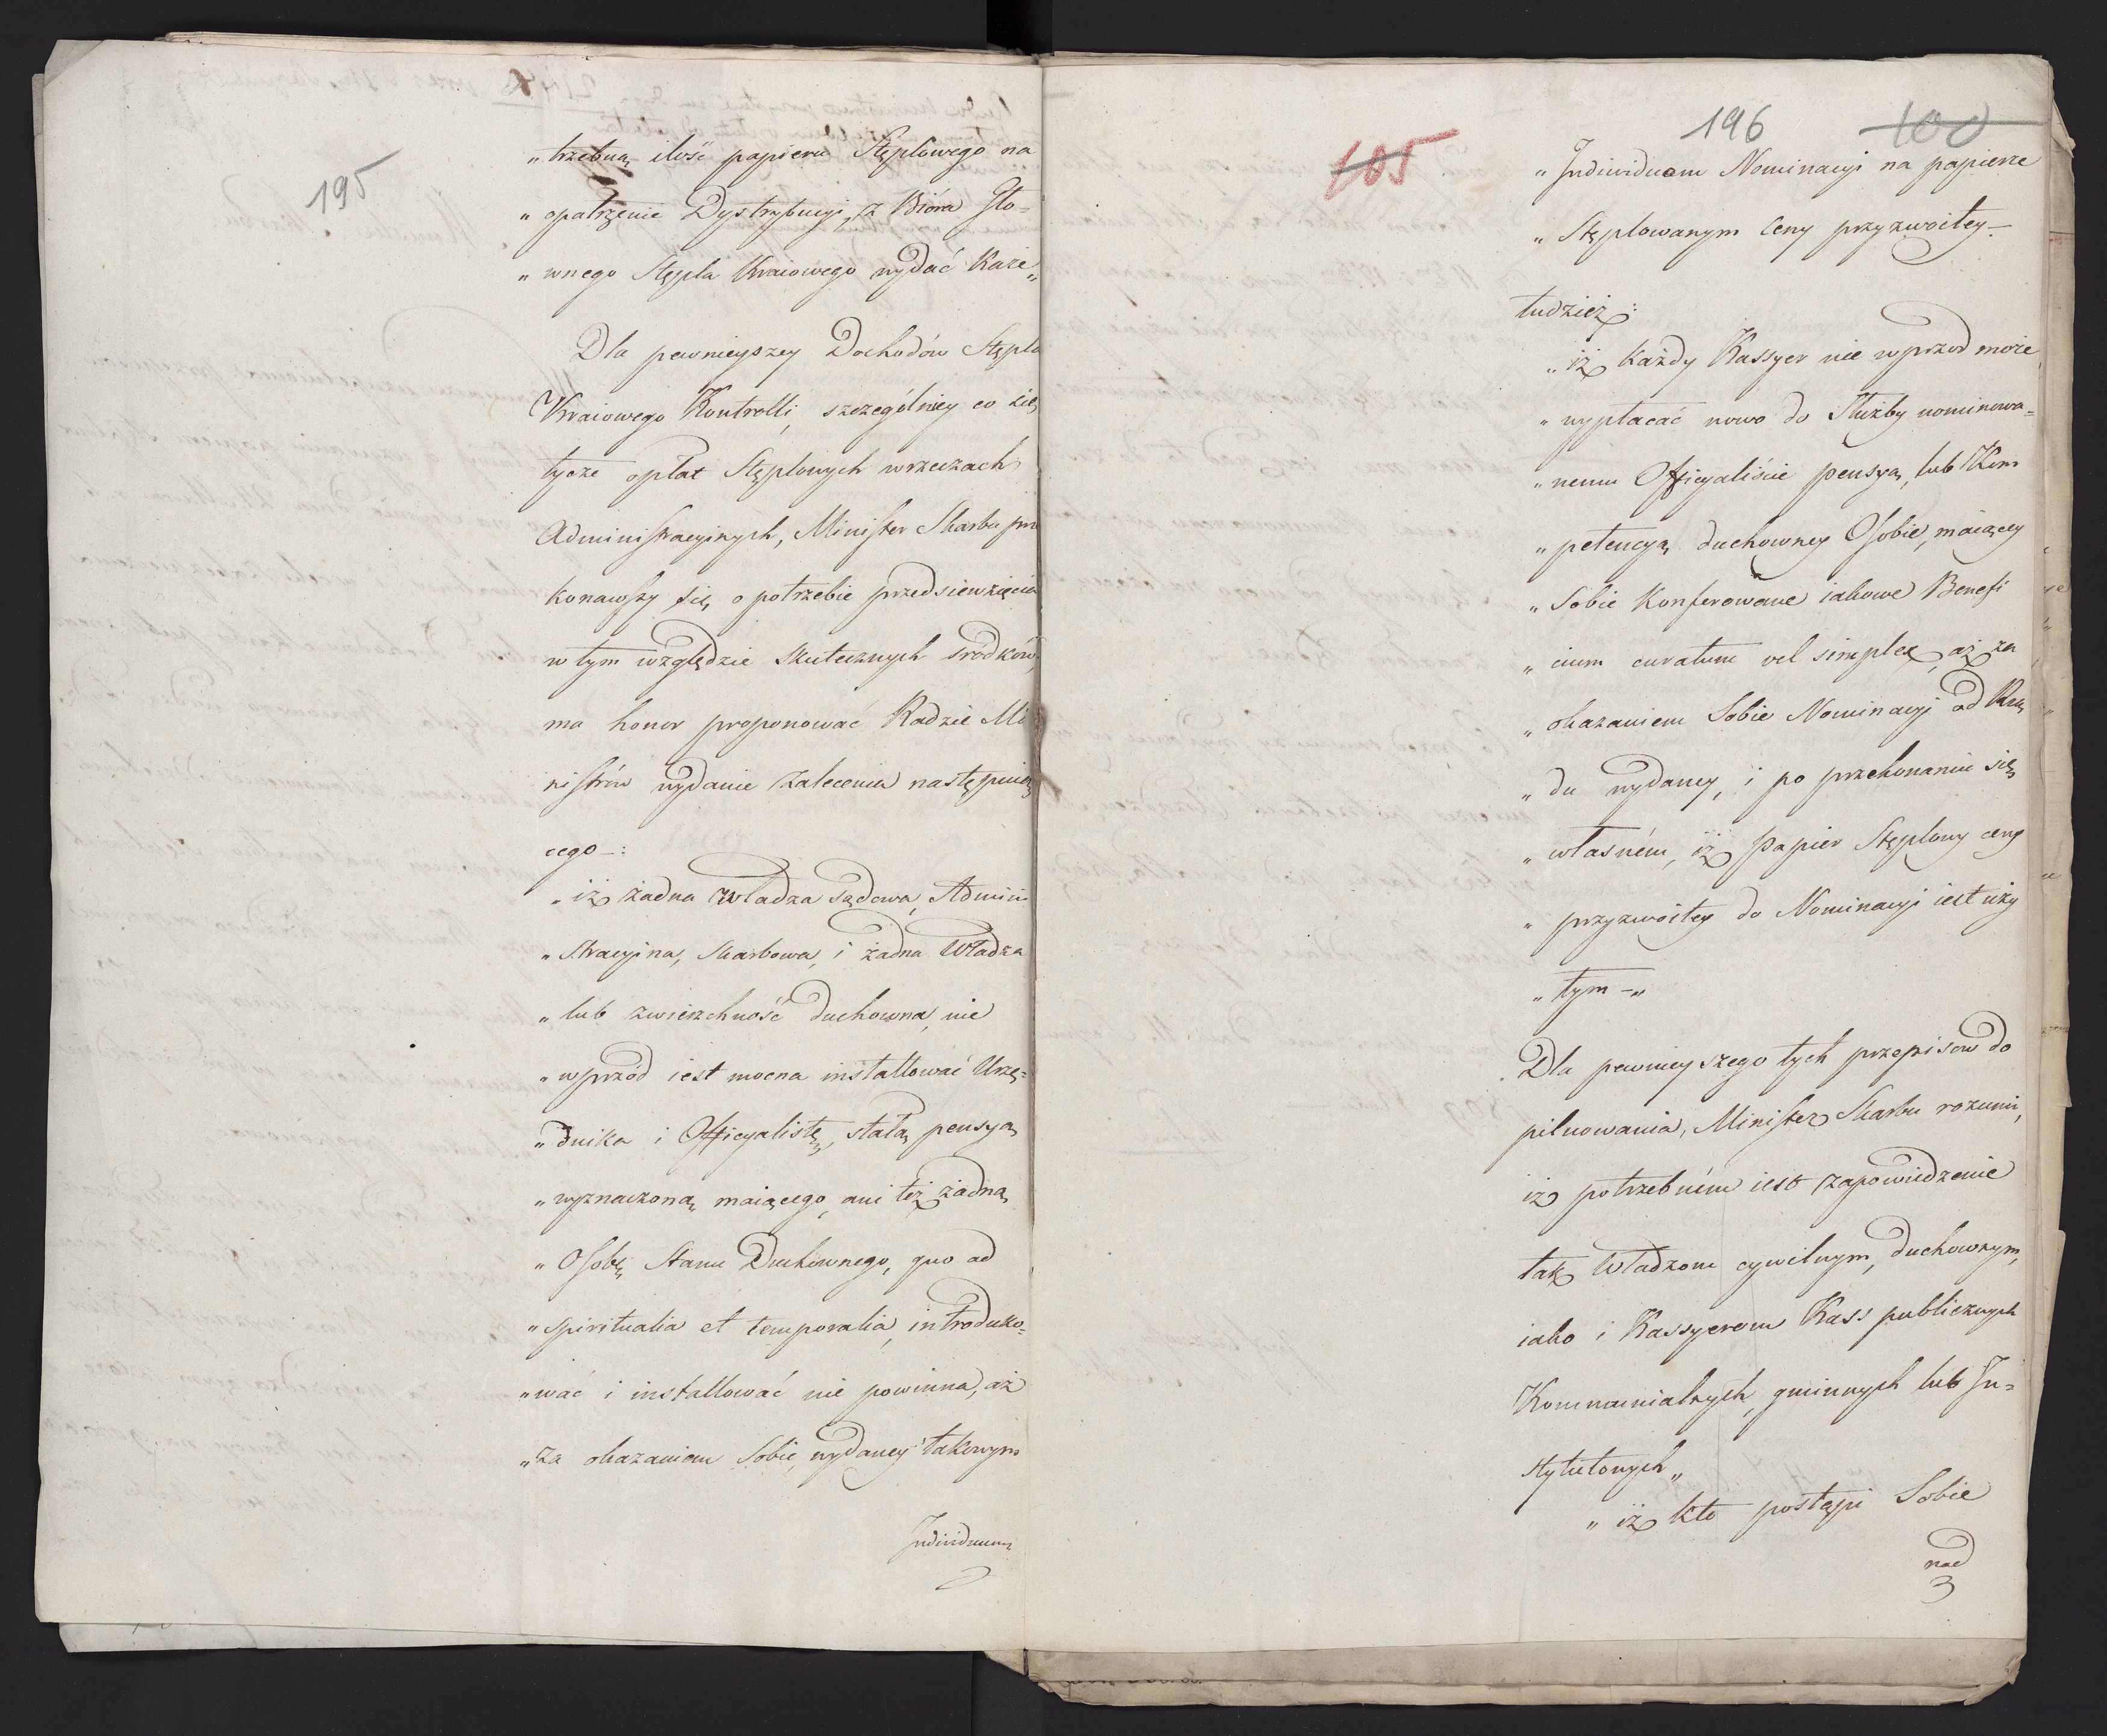 195
„trzebną ilość papieru Stęplowego na
„opatrzenie Dystrybucyi, z Bióra Głó=
„wnego Stępla Kraiowego wydać każe„
Dla pewnieyszey Dochodów Stępla
Kraiowego Kontrolli, szczególniey co się
tycze opłat Stęplowych w rzeczach
Administracyinych, Minister Skarbu prze
konawszy się o potrzebie przedsiewzięcia
w tym względzie skutecznych środków,
ma honor proponować Radzie Mi
nistrów wydanie zalecenia następuią
cego:
„iż żadna Władza sądowa, Admini
„stracyina, skarbowa, i żadna Władza
„lub zwierzchność duchowna, nie
„wprzód iest mocna installować Urzę=
„dnika i Officyalistę, stałą pensyą
„wyznaczoną maiącego, ani też żadną
„Osobę Stanu Duchownego, quo ad
„spiritualia et temporalia, introduko=
„wać i installować nie powinna, aż
„za okazaniem Sobie, wydaney takowym
Individuum
196
100
105
„Individuom Nominacyi na papierze
„Stęplowanym Ceny przyzwoitey—
tudzież:
„iż każdy Kassyer nie wprzod może
„wypłacać nowo do Służby nominowa=
„nemu Officyaliście pensyą, lub Kom
„petencyą duchowney Osobie, maiącey
„Sobie Konferowane iakowe Benefi
„cium curatum vel simplex, aż za
„okazaniem Sobie Nominacyi od Rzą
„du wydaney, i po przekonaniu się
„własném, iż papier Stęplowy ceny
„przyzwoitey do Nominacyi iest uży
„tym—„
Dla pewnieyszego tych przepisow do
pilnowania, Minister Skarbu rozumi,
iż potrzebném iest zapowiedzenie
tak Władzom cywilnym, duchownym,
iako i Kassyerom Kass publicznych
Kommunialnych, gminnych lub In=
stytutowych„
„iż kto postąpi Sobie
nad
3